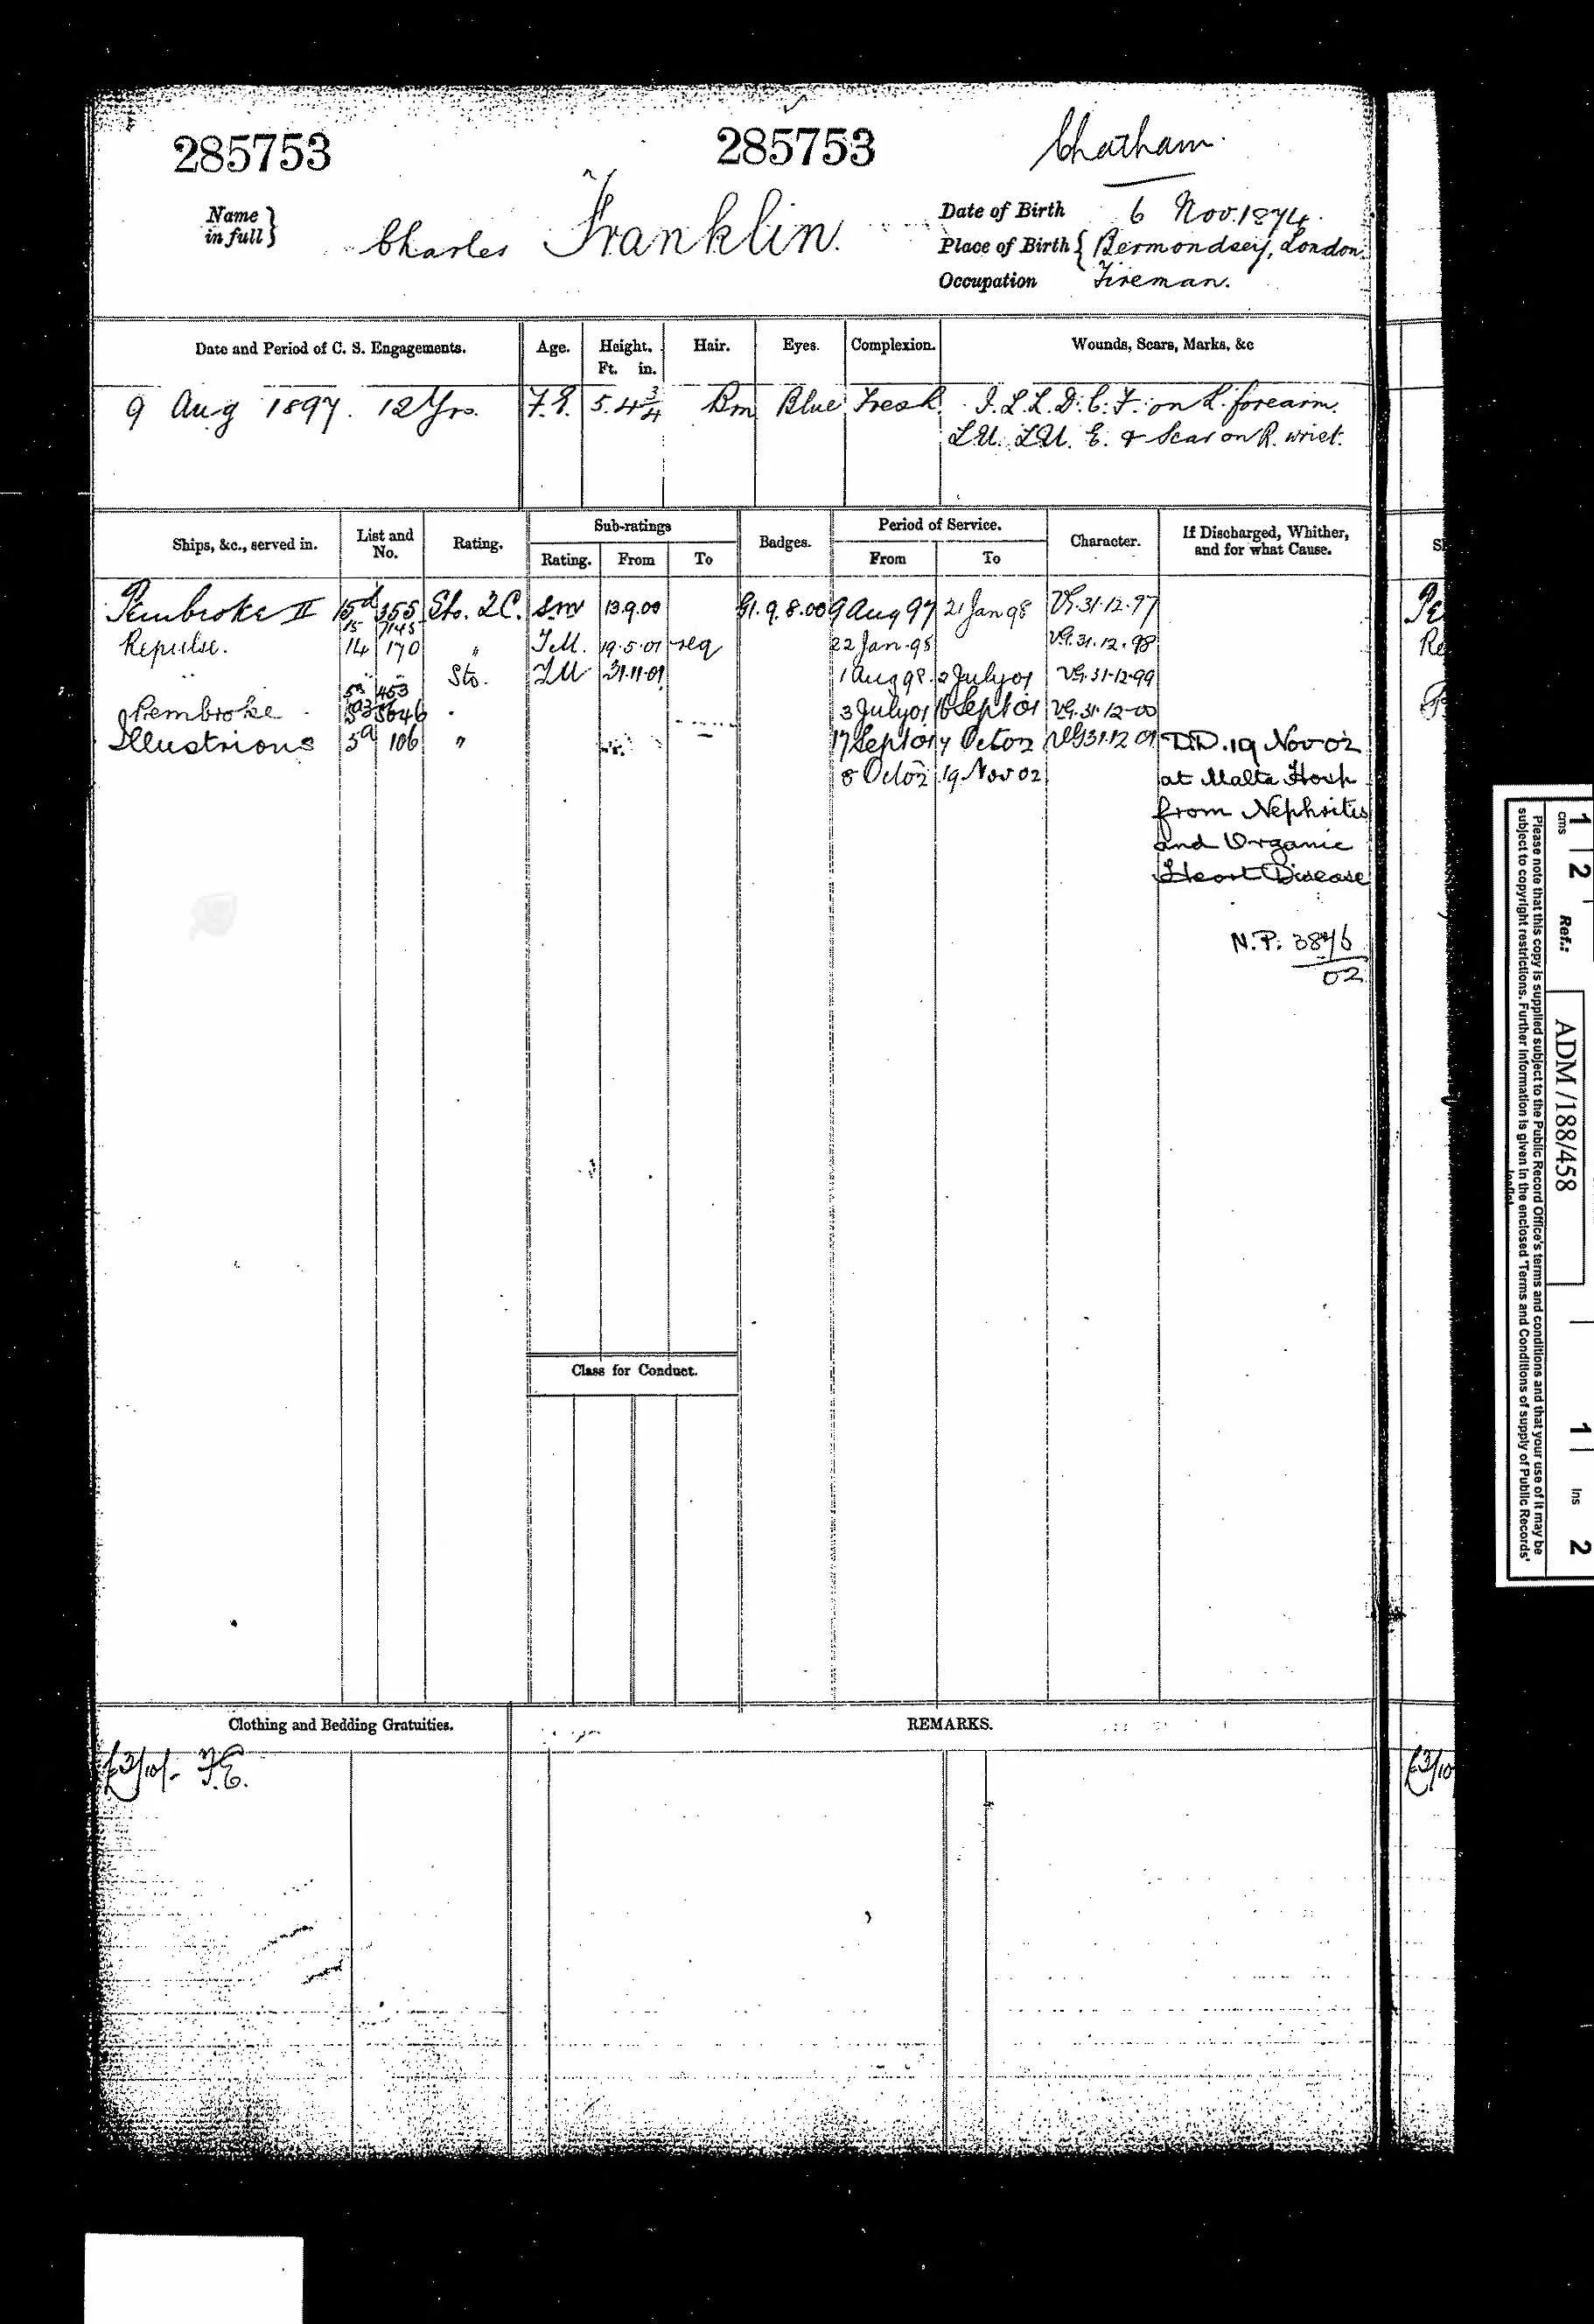 285753 285753 Chatham.
Name in full } Charles Franklin.
Date of Birth 6 Nov. 1874.
Place of Birth { Bermondsey, London.
Occupation Fireman.
Date and Period of C. S. Engagements. Age. Height. Ft. in. Hair. Eyes. Complexion. Wounds, Scars, Marks, &c
9 Aug 1897. 12 Yrs. F.E. 5. 4 3/4 Brn Blue Fresh. I.L.L.D.C.F. on L. forearm.
L.U. L.U. E. & Scar on R. wrist.
Ships, &c., served in. List and No. Rating. Sub-ratings Badges. Period of Service. Character. If Discharged, Whither, and for what Cause.
Rating. From To From To
Pembroke II 15d 355 Sto. 2C. Sm 13.9.00 G1. 9.8.00 9 Aug 97 21 Jan 98 VG. 31.12.97
15 7145
Repulse. 14 170 " T.M. 19.5.01 req 22 Jan. 98 VG. 31.12.98
" " Sto. 1 Aug 98. 2 July 01 VG. 31-12-99
5a 453
Pembroke 5646 " 3 July 01 16 Sept 01 VG. 31.12-00
Illustrious 5a 106 " 17 Sept 01 7 Oct 02 VG 31.12 01 D.D. 19 Nov 02
8 Oct 02 19 Nov 02 at Malta Hosp
from Nephritis
and Organic
Heart Disease
N.P. 3846
02
Class for Conduct.
Clothing and Bedding Gratuities. REMARKS.
£3/10/- F.E.
£3/10
1 2
cms
Ref.:
ADM /188/458
1 2
Ins
Please note that this copy is supplied subject to the Public Record Office's terms and conditions and that your use of it may be
subject to copyright restrictions. Further information is given in the enclosed 'Terms and Conditions of supply of Public Records'
leaflet